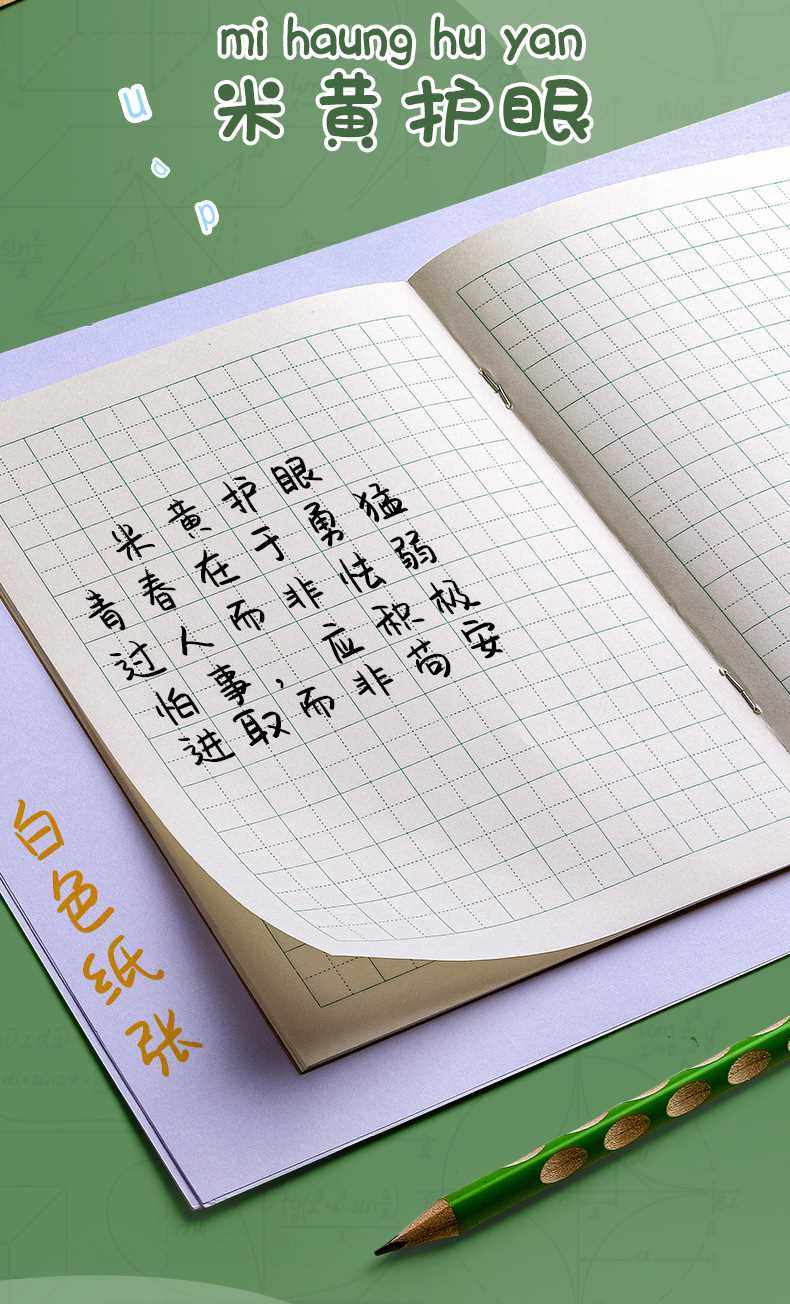 mi haung hu yan
米黄护眼
u
a
p
米黄护眼
青春在于勇猛
过人而非怯弱
怕事，应积极
进取而非苟安
白色纸张